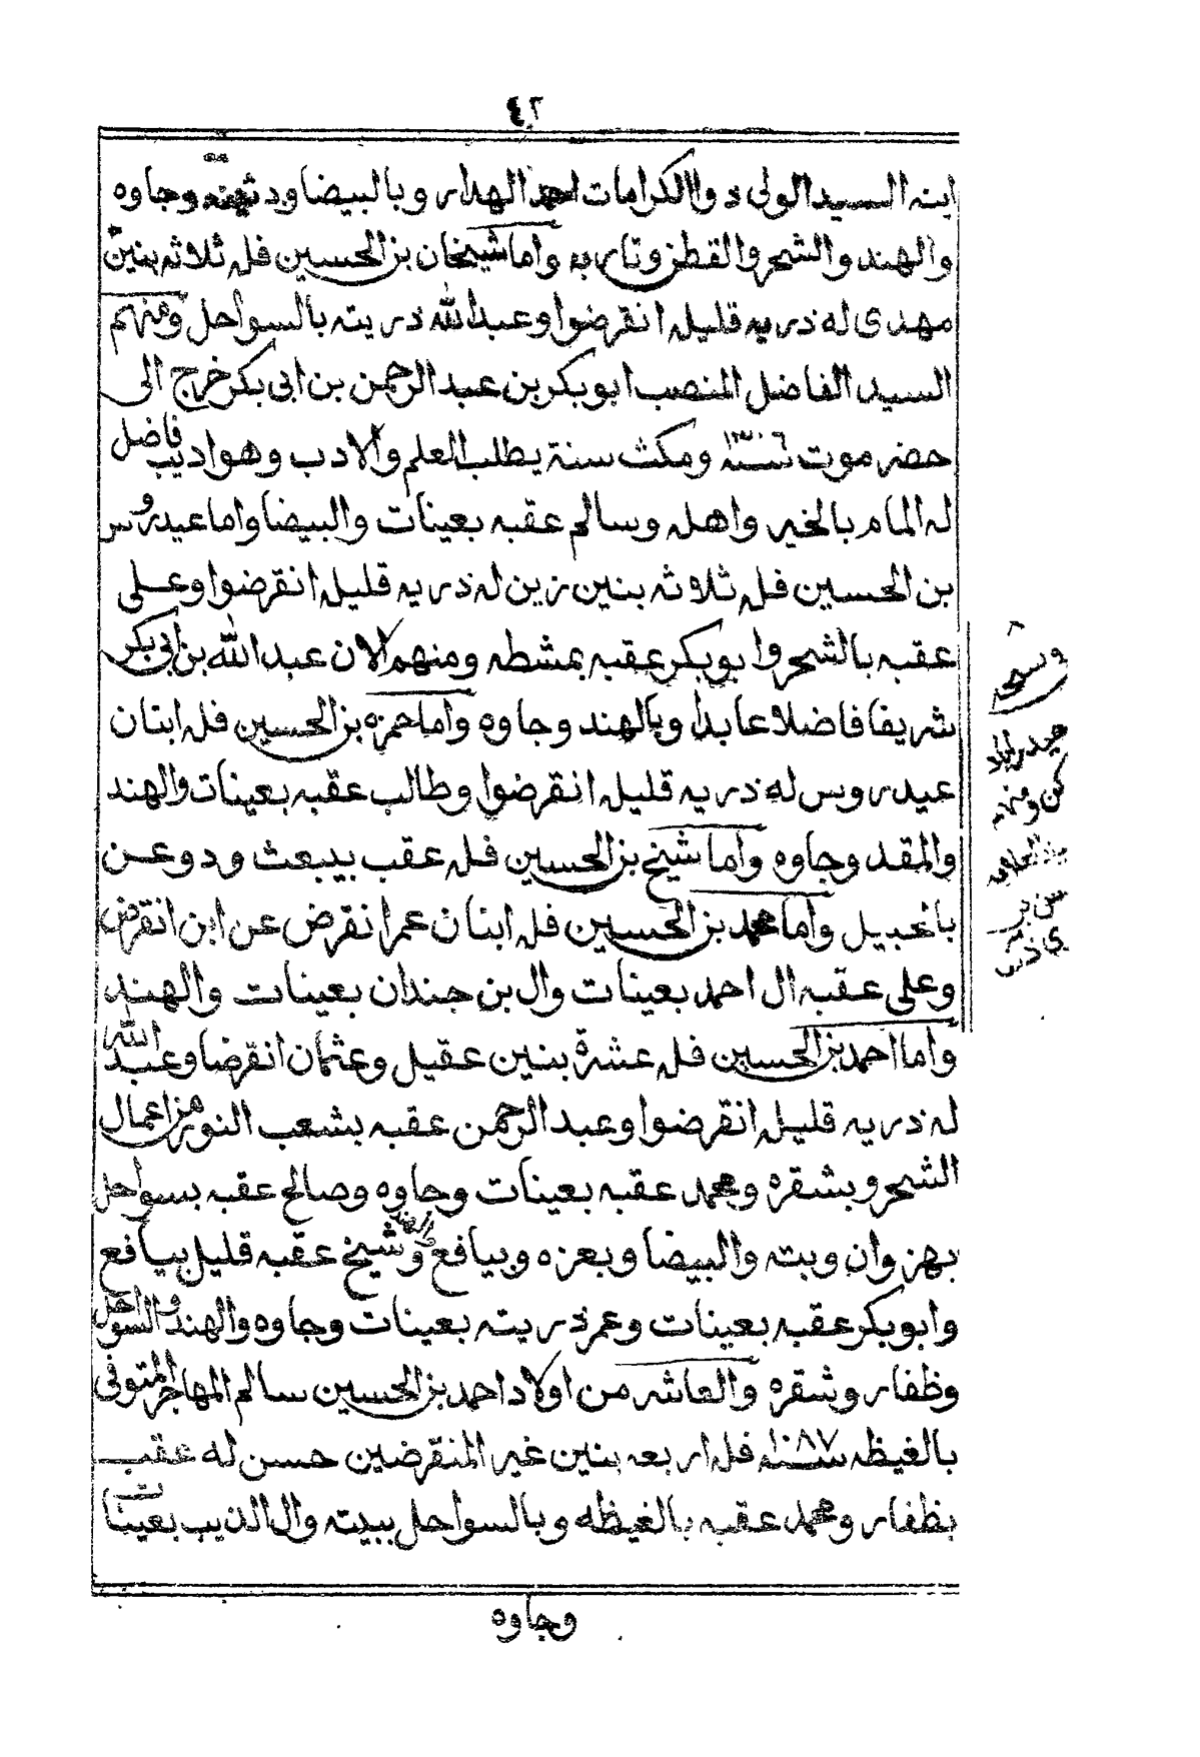 ٤٢
ابنه السيد الولي ذو الكرامات احمد الهدار وبالبيضا ودثينه وجاوه
والهند والشحر والقطن وتاربه واما شيخان بن الحسين فله ثلاثه بنين
مهدي له ذريه قليله انقرضوا وعبدالله ذريته بالسواحل ومنهم
السيد الفاضل المنصب ابوبكر بن عبدالرحمن بن ابي بكر خرج الى
حضرموت سنة ١٣٠٦ ومكث سنة يطلب العلم والادب وهو اديب فاضل
له المام بالخير واهله وسالم عقبه بعينات والبيضا واما عيدروس
بن الحسين فله ثلاثه بنين زين له ذريه قليله انقرضوا وعلي
عقبه بالشحر وابوبكر عقبه بمشطه ومنهم الان عبدالله بن ابي بكر
شريفا فاضلا عابدا وبالهند وجاوه واما حمزه بن الحسين فله ابنان
عيدروس له ذريه قليله انقرضوا وطالب عقبه بعينات والهند
والمقد وجاوه واما شيخ بن الحسين فله عقب بيبعث ودوعن
بالخبيل واما محمد بن الحسين فله ابنان عمر انقرض عن ابن انقرض
وعلي عقبه ال احمد بعينات وال بن جندان بعينات والهند
واما احمد بن الحسين فله عشرة بنين عقيل وعثمان انقرضا وعبد الله
له ذريه قليله انقرضوا وعبدالرحمن عقبه بشعب النور من اعمال
الشحر وبشقره ومحمد عقبه بعينات وجاوه وصالح عقبه بسواحل
بهزوان وبته والبيضا وبعزه وبيافع والهند وشيخ عقبه قليل بيافع
وابوبكر عقبه بعينات وعمر ذريته بعينات وجاوه والهند والسواحل
وظفار وشقره والعاشر من اولاد احمد بن الحسين سالم المهاجر المتوفى
بالغيظه سنة ١٠٨٧ فله اربعه بنين غير المنقرضين حسن له عقب
بظفار ومحمد عقبه بالغيظه وبالسواحل ببيته وال الذيب بعينات
وجاوه
حيدراباد